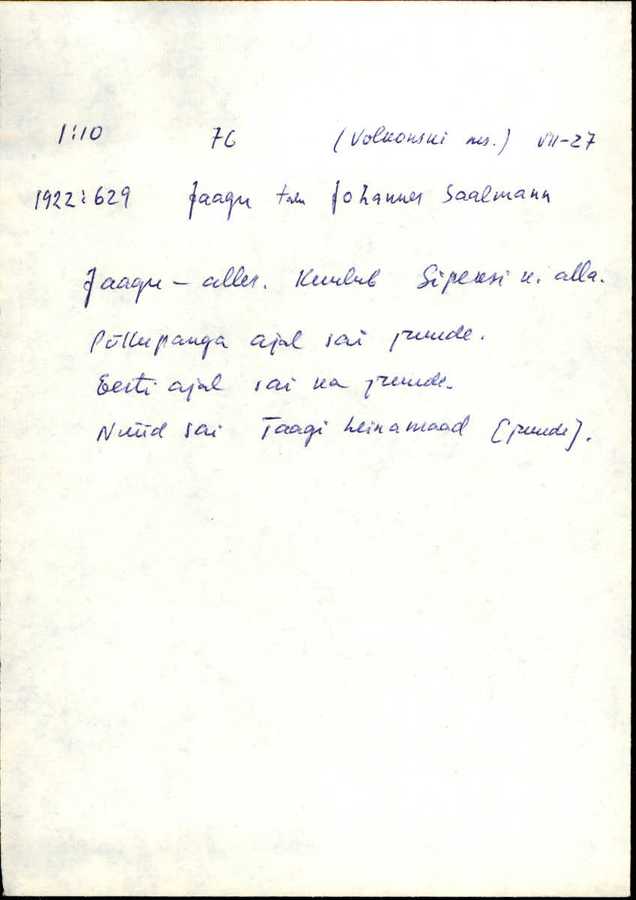 1:10 76 (Volkonski ms.) VII-27
1922:629 Jaagu talu Johannes Saalmann
Jaagu – alles. Kuulub Sipelasi k. alla.
Põllupanga ajal sai juurde.
Eesti ajal sai ka juurde.
Nüüd sai Taagi heinamaad [juurde].